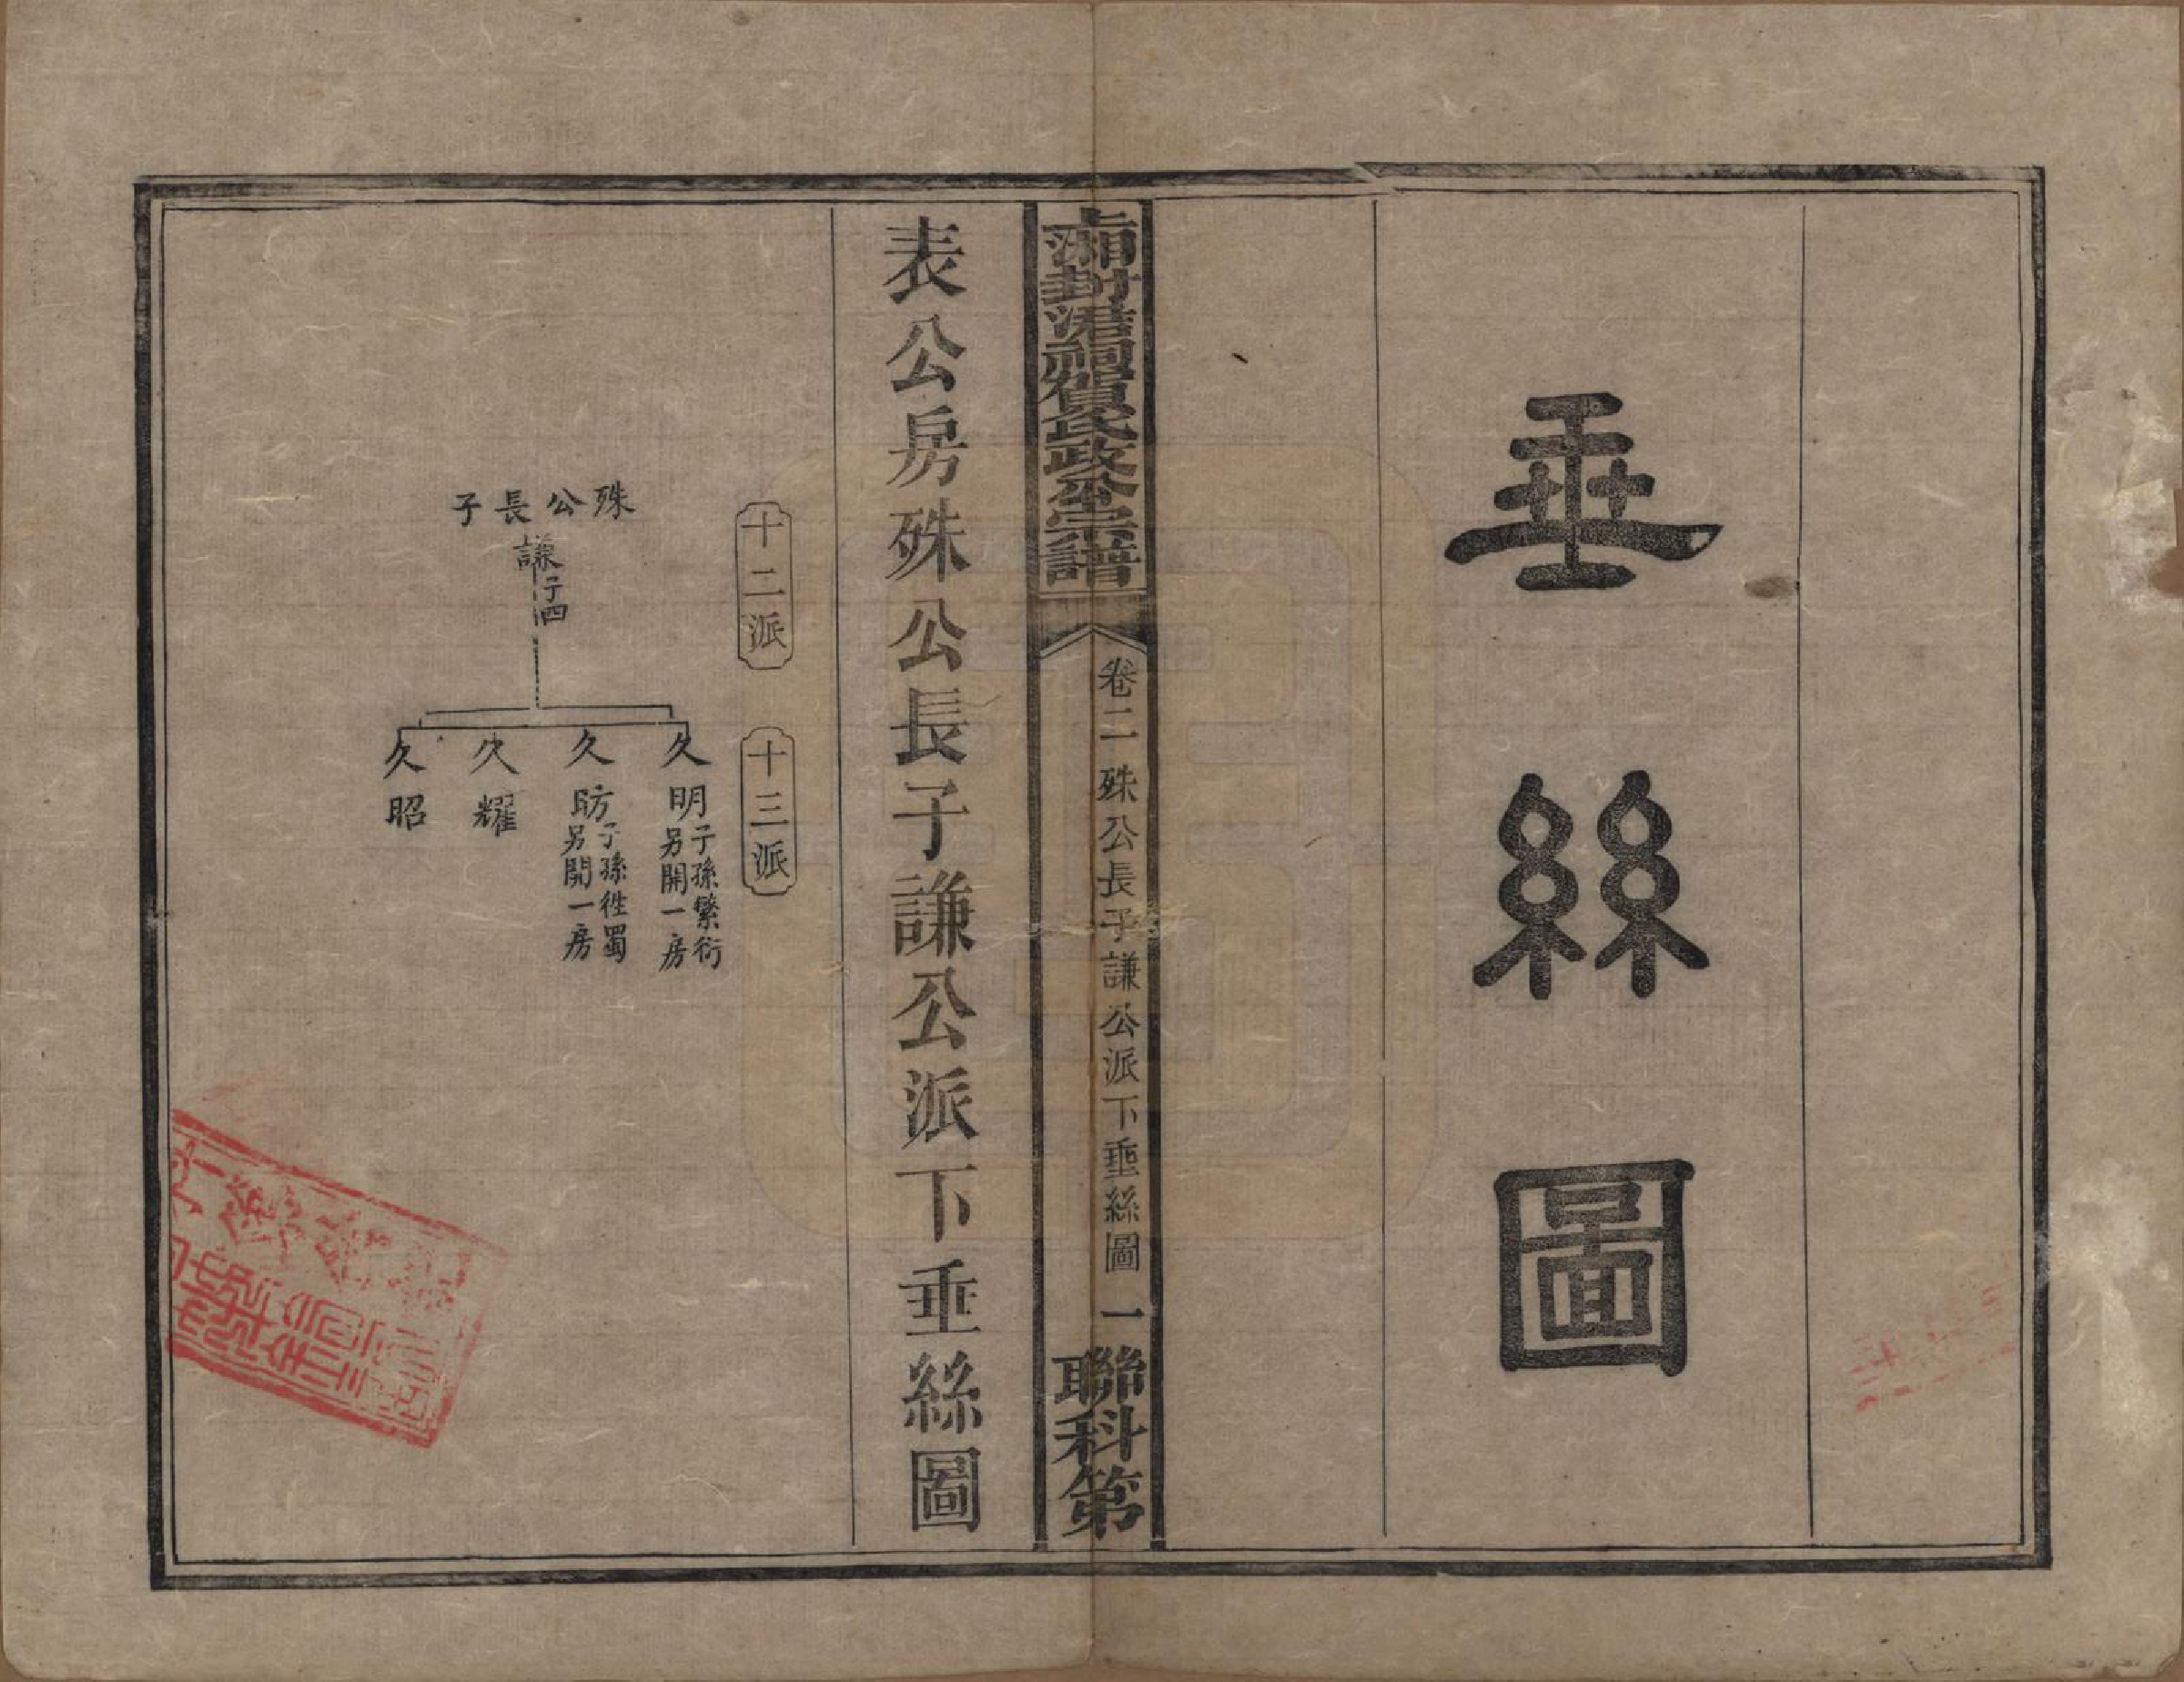 垂絲圖
上湘封洢祠賀氏政公宗譜
卷二 殊公長子謙公派下垂絲圖 一
聯科第
表公房殊公長子謙公派下垂絲圖
十二派
十三派
殊公長子
謙 子四
久明 子孫繁衍另開一房
久昉 子孫徃蜀另開一房
久耀
久昭